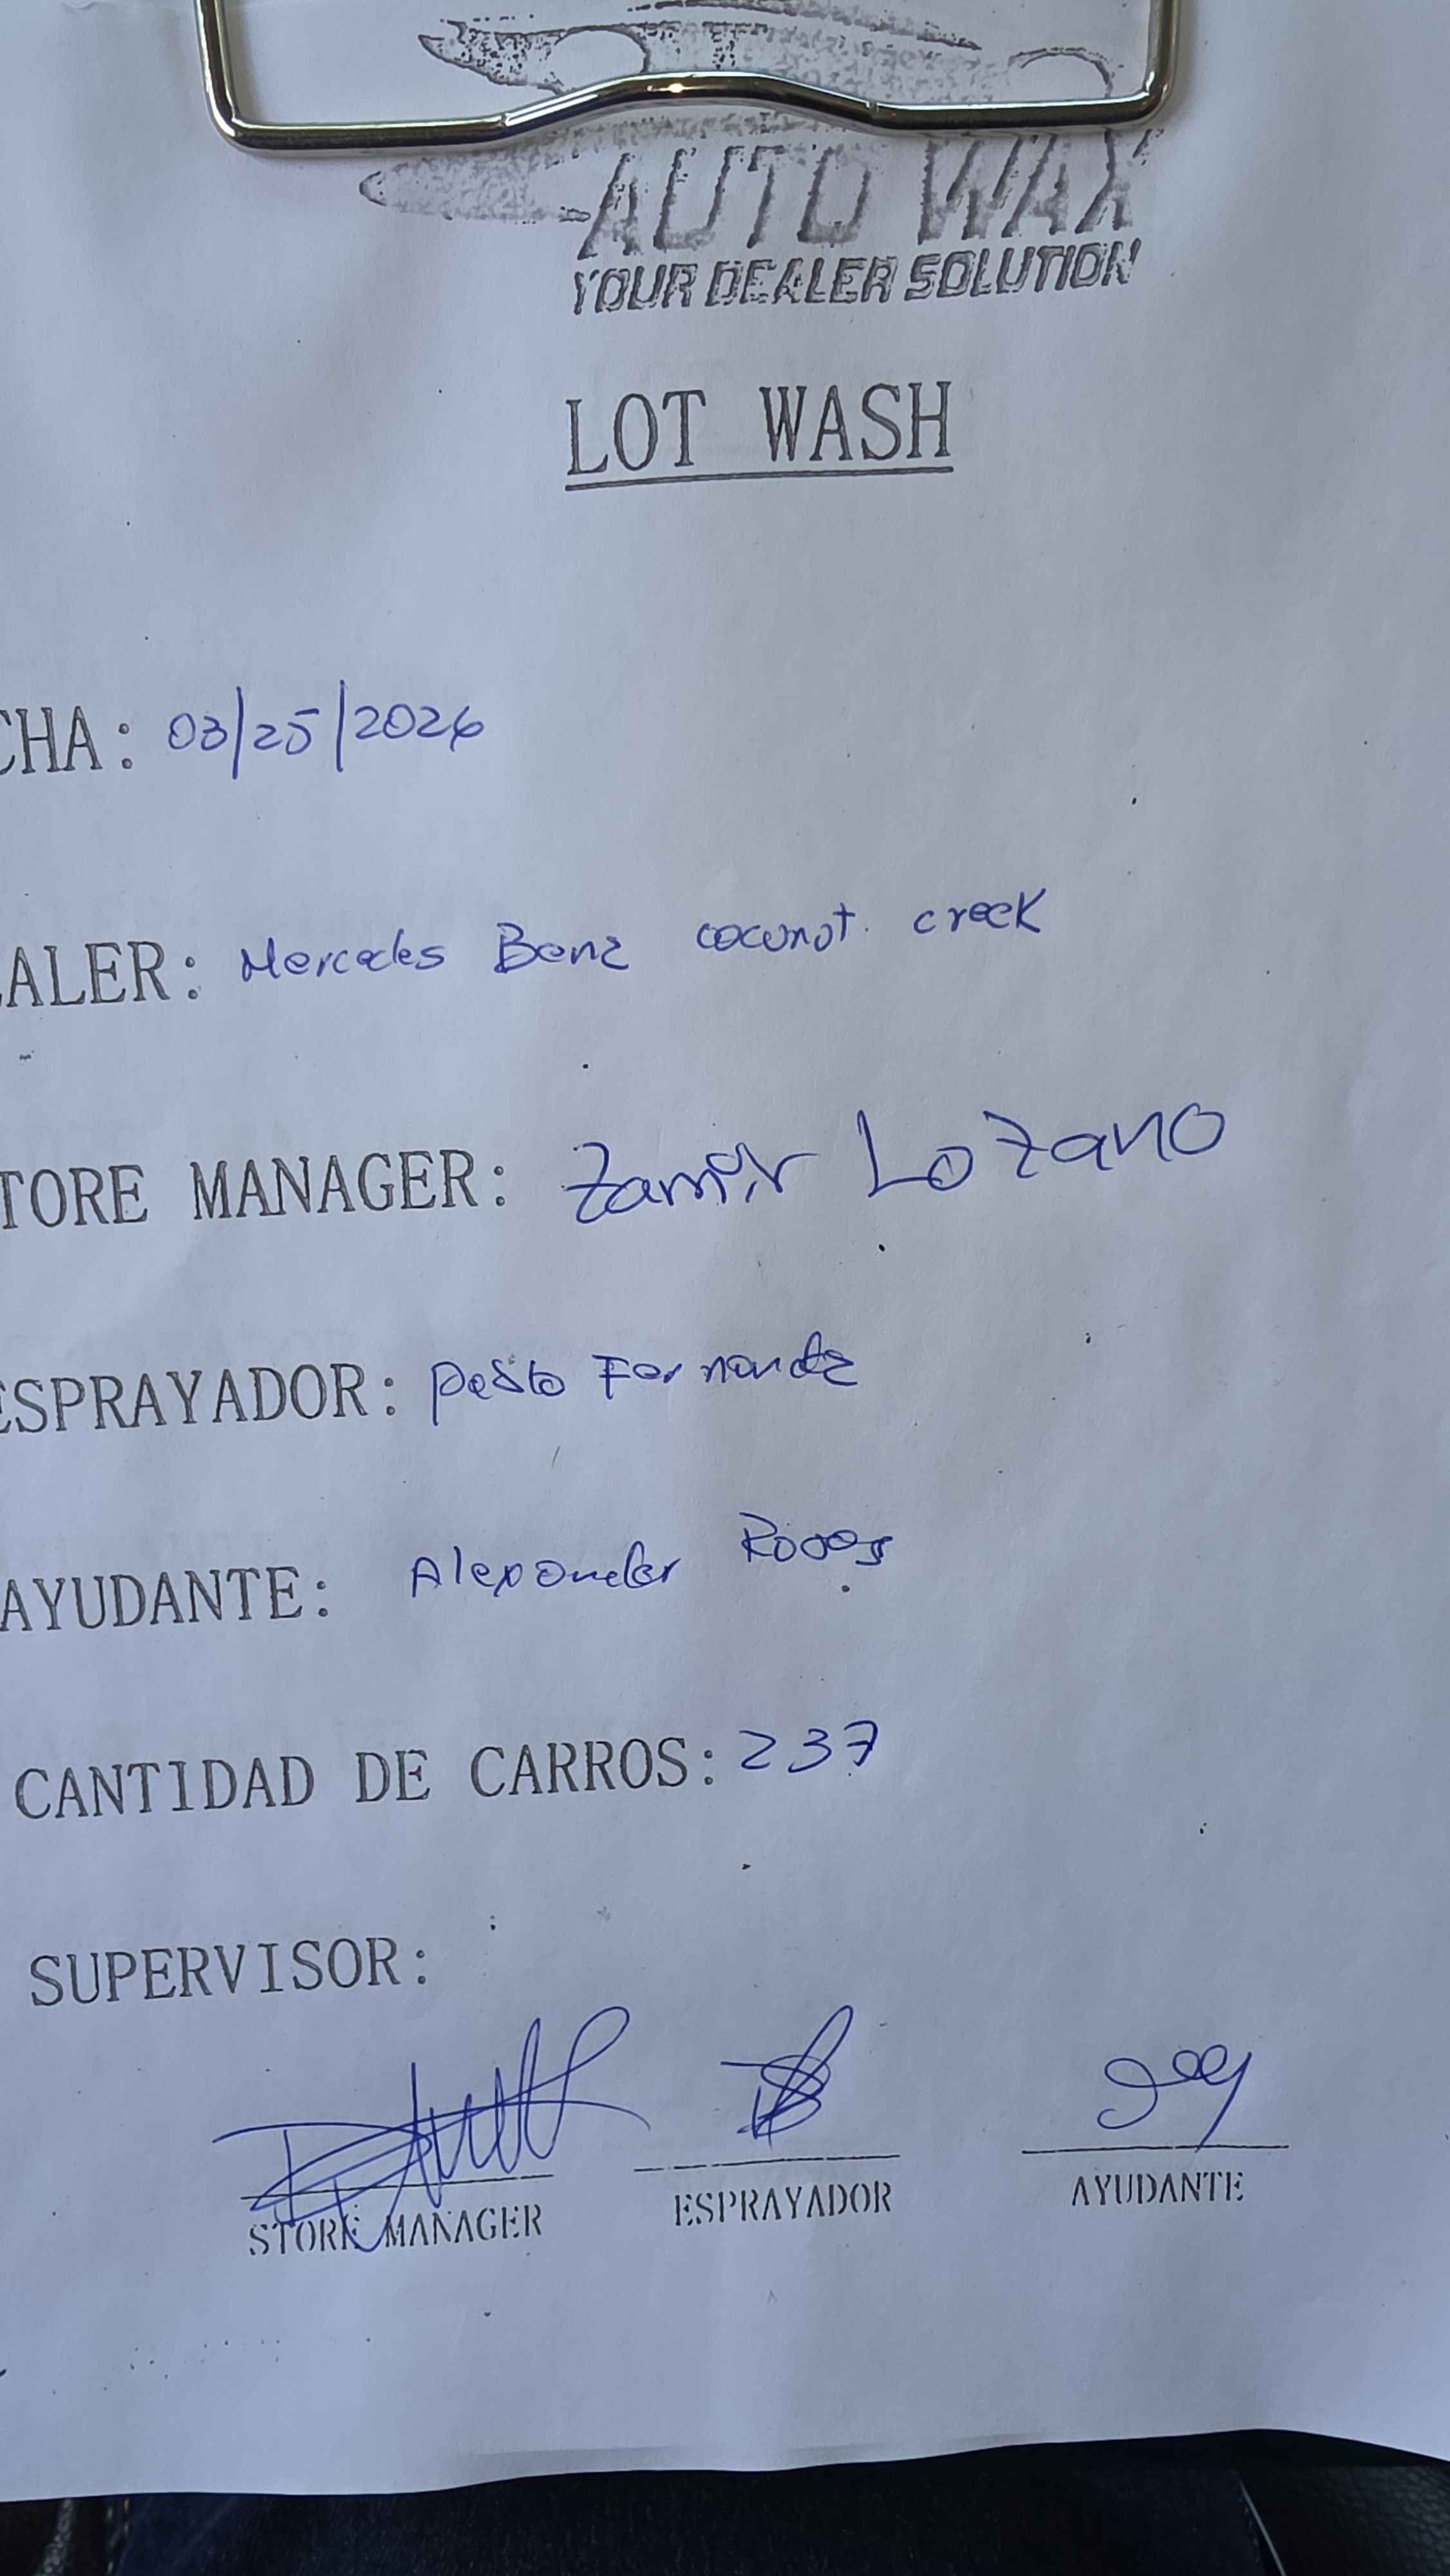 AUTO WAX
YOUR DEALER SOLUTION
LOT WASH
CHA: 03/25/2026
ALER: Mercedes Benz coconot creek
TORE MANAGER: Zamir Lozano
ESPRAYADOR: Pedro Fernandez
AYUDANTE: Alexander Rojas
CANTIDAD DE CARROS: 237
SUPERVISOR:
STORE MANAGER ESPRAYADOR AYUDANTE